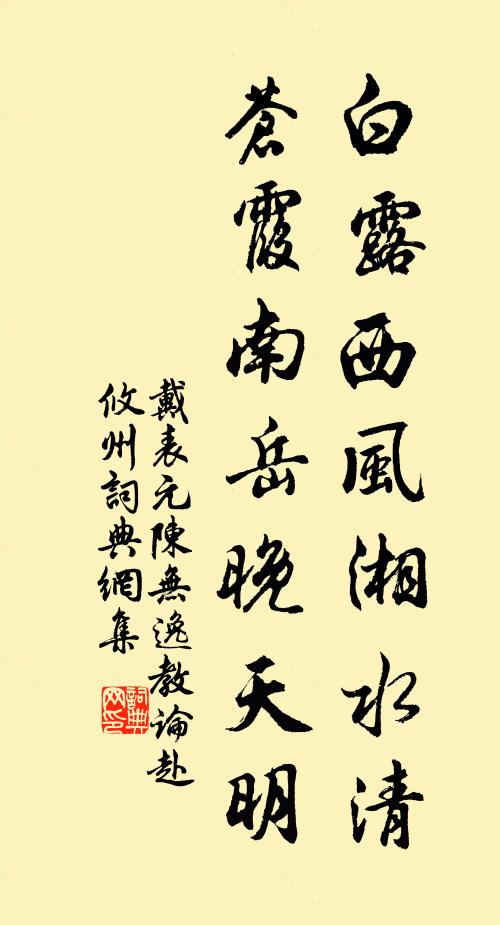 白露西風湘水清
蒼霞南岳晚天明
戴表元陳無逸教論赴
攸州詞典網集
詞典网印